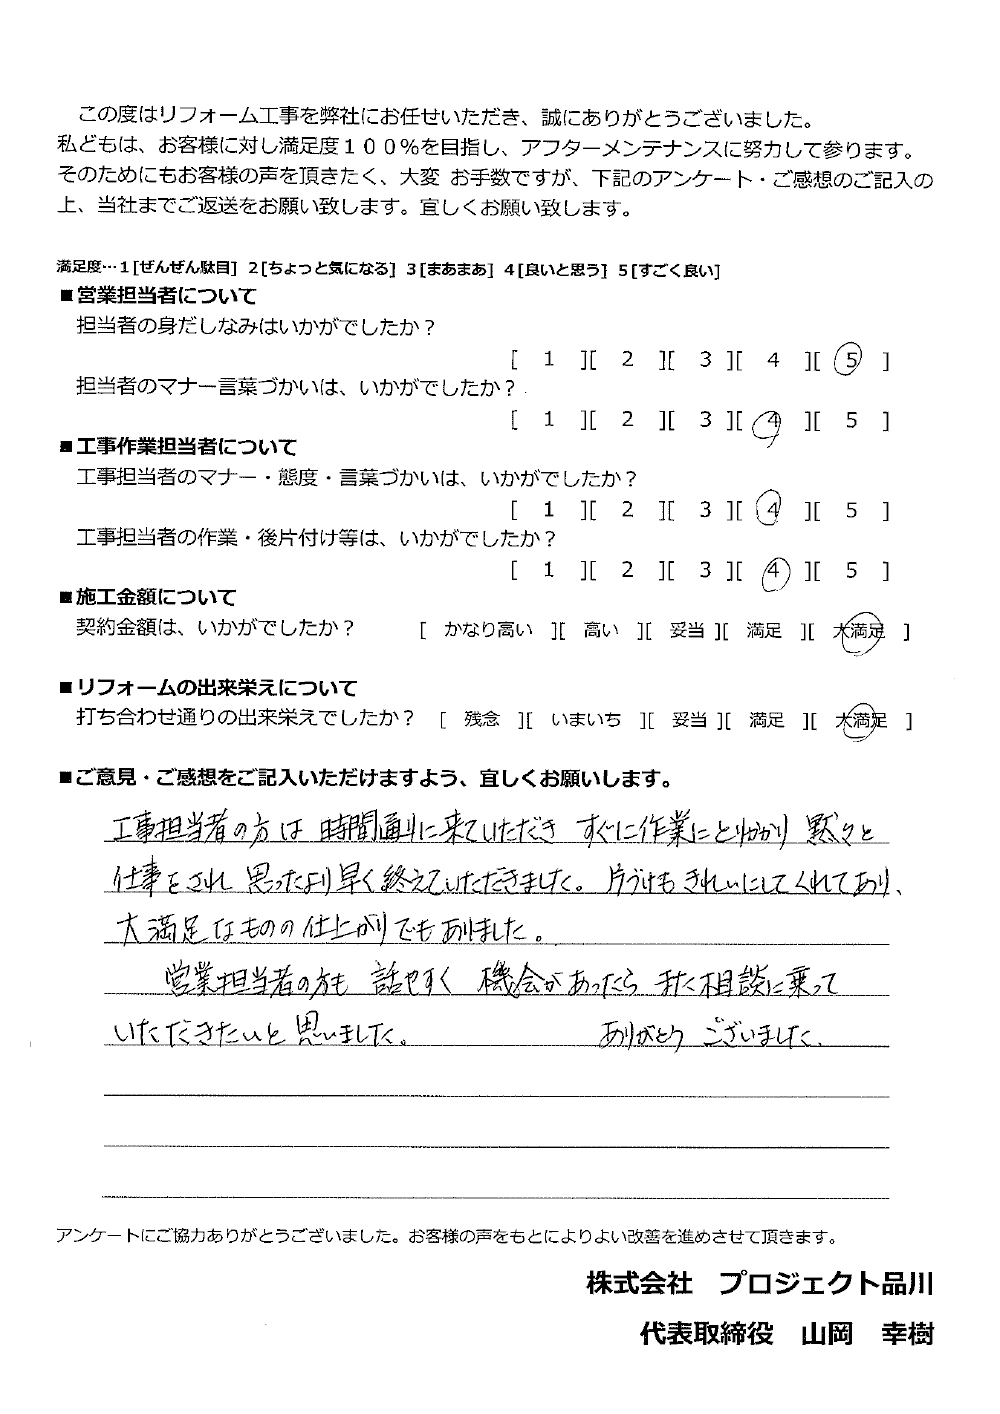 この度はリフォーム工事を弊社にお任せいただき、誠にありがとうございました。
私どもは、お客様に対し満足度１００％を目指し、アフターメンテナンスに努力して参ります。
そのためにもお客様の声を頂きたく、大変 お手数ですが、下記のアンケート・ご感想のご記入の
上、当社までご返送をお願い致します。宜しくお願い致します。
満足度…１[ぜんぜん駄目] ２[ちょっと気になる] ３[まあまあ] ４[良いと思う] ５[すごく良い]
■営業担当者について
担当者の身だしなみはいかがでしたか？
[ 1 ][ 2 ][ 3 ][ 4 ][ 5 ]
担当者のマナー言葉づかいは、いかがでしたか？
[ 1 ][ 2 ][ 3 ][ 4 ][ 5 ]
■工事作業担当者について
工事担当者のマナー・態度・言葉づかいは、いかがでしたか？
[ 1 ][ 2 ][ 3 ][ 4 ][ 5 ]
工事担当者の作業・後片付け等は、いかがでしたか？
[ 1 ][ 2 ][ 3 ][ 4 ][ 5 ]
■施工金額について
契約金額は、いかがでしたか？ [ かなり高い ][ 高い ][ 妥当 ][ 満足 ][ 大満足 ]
■リフォームの出来栄えについて
打ち合わせ通りの出来栄えでしたか？ [ 残念 ][ いまいち ][ 妥当 ][ 満足 ][ 大満足 ]
■ご意見・ご感想をご記入いただけますよう、宜しくお願いします。
工事担当者の方は 時間通りに来ていただき すぐに作業にとりかかり 黙々と
仕事をされ 思ったより早く終えていただきました。片づけもきれいにしてくれてあり、
大満足なものの仕上がりでもありました。
営業担当者の方も 話やすく 機会があったら また相談に乗って
いただきたいと思いました。 ありがとう ございました.
アンケートにご協力ありがとうございました。お客様の声をもとによりよい改善を進めさせて頂きます。
株式会社 プロジェクト品川
代表取締役 山岡 幸樹